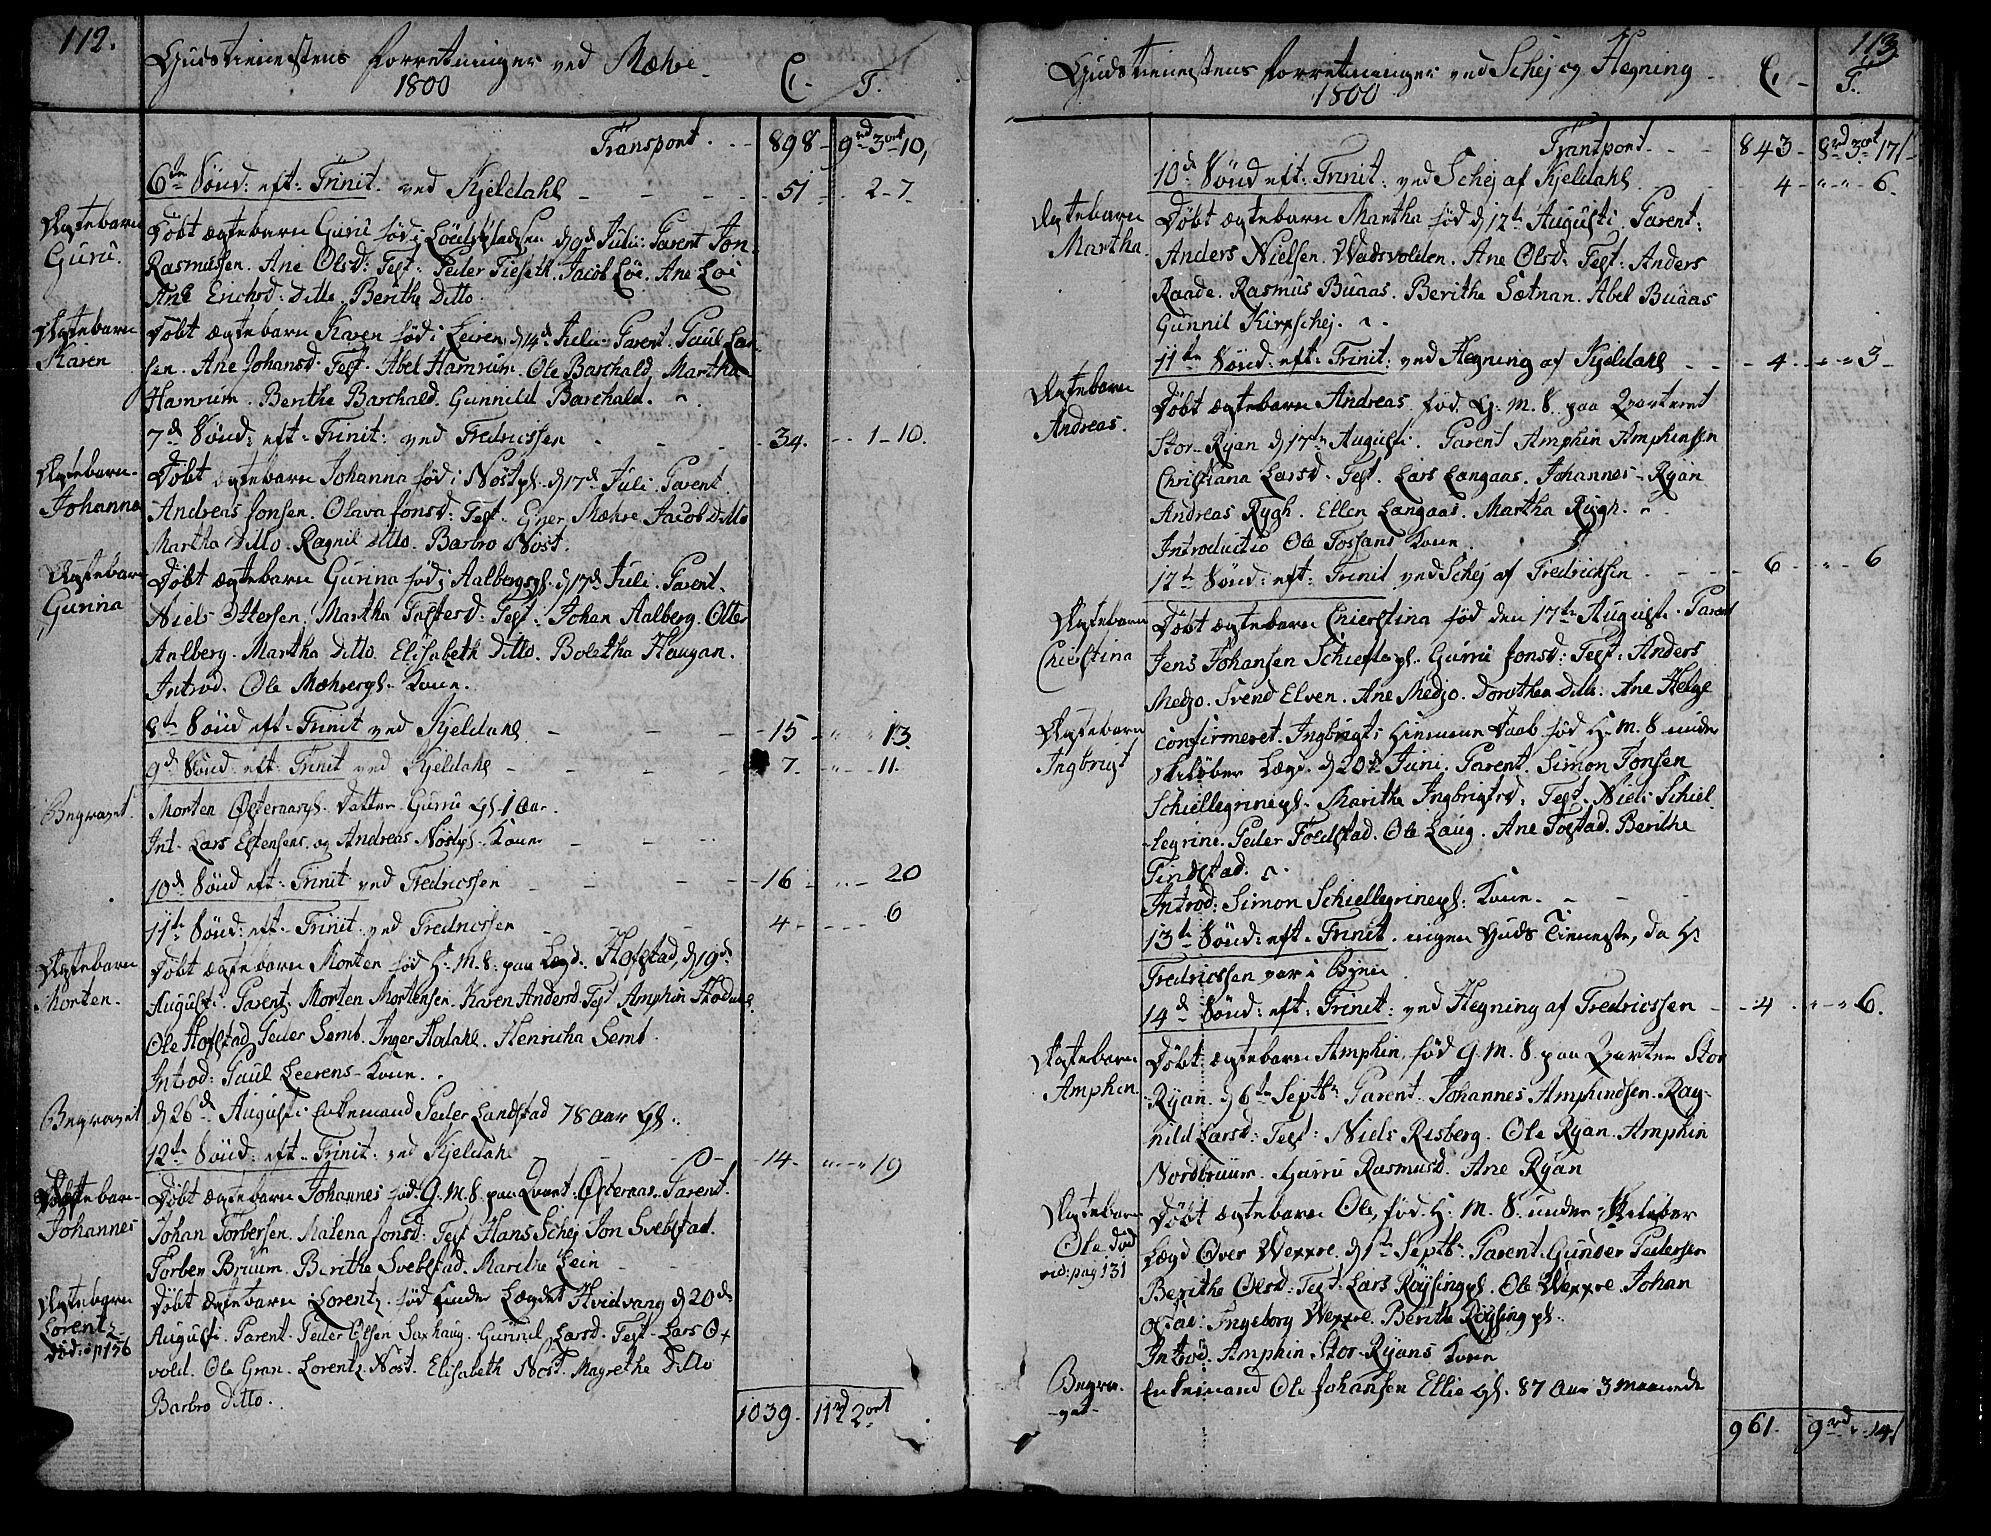 112.
Gudstienestens forretninger ved Mæhre
1800
C. T.
Transport 898 9rd 3ort 10
6te Sønd: eft: Trinit. ved Kjeldahl 51 2 7
Ægtebarn Guru. Døbt ægtebarn Guru fød i d 9d Julii Parent Jon
Rasmussen. Ane Olsd: Test: Peder Tieseth. Jacob Løe. Ane Løe
Ane Erichsd: Ditto. Berithe Ditto.
Ægtebarn Karen Døbt ægtebarn Karen fød i Leiren d 14d Julii Parent. Paul Lar-
sen. Ane Johansd. Test. Abel Hamrum. Ole Barchald. Martha
Hamrum. Berithe Barchald. Gunnild Barchald.
7d Sønd: eft: Trinit: ved Fredricssen 34. 1 10.
Ægtebarn Johanna Døbt ægtebarn Johanna fød i Nøstpl. d 17d Juli. Parent.
Andreas Jonsen. Olava Jonsd: Test. Mæhre Jacob Ditto
Martha Ditto. Ragnil Ditto. Barbro Nøst.
Ægtebarn Gurina Døbt ægtebarn Gurina fød i Aalbergspl. d 17d Juli. Parent.
Niels Ottersen, Martha Tostersd: Test: Johan Aalberg. Otter
Aalberg. Martha Ditto. Elisabeth Ditto. Boletha Haugan.
Introd. Ole Mæhrergl. Kone.
8de Sønd eft. Trinit ved Kjeldahl 15 13.
9d Sønd: eft: Trinit ved Kjeldahl 7. 11.
Begravet. Morten Østernaspl. Datter Gurru gl: 1 Aar.
Int. Lars Estensens og Andreas Nøstpl. Koner
10d Sønd eft: Trinit ved Fredricssen 16 20
11te Sønd: eft: Trinit: ved Fredricssen 4 6
Ægtebarn Morten. Døbt ægtebarn Morten fød H: M: S: paa Lægd. Hofstad, d 19d
Augusti. Parent: Morten Mortensen. Karen Andersd. Test Amphin
Ole Hofstad Peder Semb. Inger Hodahl. Henricha Semb.
Introd: Paul Leerens Kone.
Begravet d 26d Augusti Enkemand Peder Landstad 78 Aar gl.
12te Sønd: eft: Trinit: ved Kjeldahl 14 19
Ægtebarn Johannes Døbt ægtebarn Johannes fød. G. M. S. paa Qvart: Østernas. Parent.
Johan Torbersen. Malena Jonsd: Test Hans Schej Jon Svebstad.
Torber Bruum. Berithe Svebstad. Marithe Lein
Ægtebarn Lorentz død: p 156 Døbt ægtebarn Lorentz. fød under Lægdet Hvidvang d 20de
Augusti. Parent. Peder Olsen Saxhaug. Gunnil Larsd. Test. Lars Ox
vold. Ole Gran. Lorentz Nøst. Elisabeth Nøst. Magrethe Ditto
Barbro Ditto.
1039. 11rd 2ort
113
Gudstienestens forretninger ved Schej og Hegning
1800
C T.
Transport 843 8rd 3ort 17
10d Sønd eft: Trinit: ved Schej af Kjeldahl 4 6.
Ægtebarn Martha. Døbt ægtebarn Martha fød d 12te Augusti Parent:
Anders Nielsen. Wadsvolden. Ane Olsd: Test: Anders
Raade. Rasmus Buaas. Berithe Sætnan. Abel Buaas
Gunnil Kirkschej.
11te Sønd: eft: Trinit: ved Hegning af Kjeldahl 4 3
Ægtebarn Andreas. Døbt ægtebarn Andreas. fød G: M. S. paa Qvarteret
Stor-Ryan d 17te Augusti. Parent Amphin Amphinsen
Christiana Larsd. Test. Lars Langaas. Johannes Ryan
Andreas Rygh. Ellen Langaas. Martha Riigh.
Introductio Ole Tossans Kone
12te Sønd: eft: Trinit ved Schej af Fredricksen 6 6
Ægtebarn Chierstina Døbt ægtebarn Chierstina fød den 17te Augusti. Parent
Jens Johansen Schieftepl. Gurru Jonsd: Test: Anders
Medjo. Svend Elven. Ane Medjo. Dorothea Ditto: Ane Helge
Ægtebarn Ingbrigt confirmeret. Ingbrigts hiemme Daab fød H. M. S under
Skiløber Lægd. d 20de Juni. Parent. Simon Jonsen
Schiellegrinepl. Marithe Ingbrigtsd. Test. Niels Schiel
legrine. Peder Foedstad. Ole Laug. Ane Foestad. Berithe
Tindstad.
Introd: Simon Schiellegrinepl: Kone.
13te Sønd: eft. Trinit. ingen Guds Tieneste, da H:
Fredricssen var i Byen
14d Sønd: eft: Trinit: ved Hegning af Fredricssen 4 6.
Ægtebarn Amphin. Døbt ægtebarn Amphin, fød G. M. S. paa Qvarter Stor
Ryan. d 6te Septb: Parent. Johannes Amphindsen. Rag-
nild Larsd: Test: Niels Risberg. Ole Ryan. Amphin
Nordbruum. Gurru Rasmusd. Ane Ryan
Ægtebarn Ole død vid: pag 131 Døbt ægtebarn Ole, fød. H: M. S. under Skiløber
Lægd Over Wexre. d 1te Septb: Parent. Gunder Pedersen
Berithe Olsd: Test: Lars Røysingpl. Ole Wexre. Johan
Opdal: Ingeborg Wexre. Berithe Røysingpl.
Introd. Amphin Stor-Ryans Kone
Begra-
vet Enkemand Ole Johansen Ellie gl. 87 Aar 3 Maaneder
961. 9rd 14